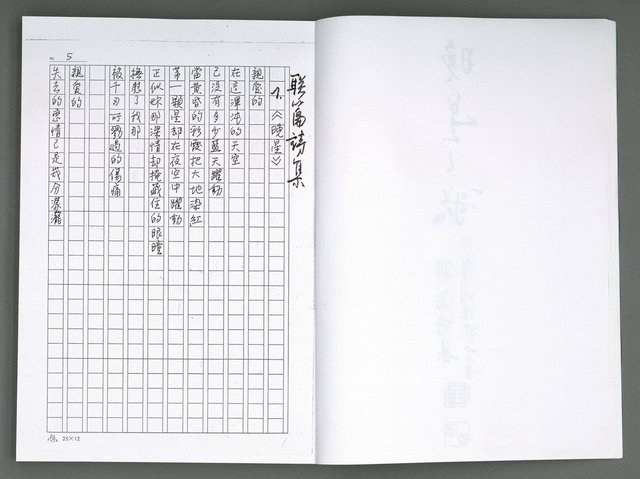 聯篇詩集
1.《晚星》
親愛的
在這渾沌的天空
已沒有多少藍天躍動
當黃昏的彩霞把大地染紅
第一顆星却在夜空中躍動
正似妳那深情却掩藏住的眼瞳
撫慰了我那
被千刃所戮過的傷痛
親愛的
失去的恩情已是幾分
NO. 5
25×12